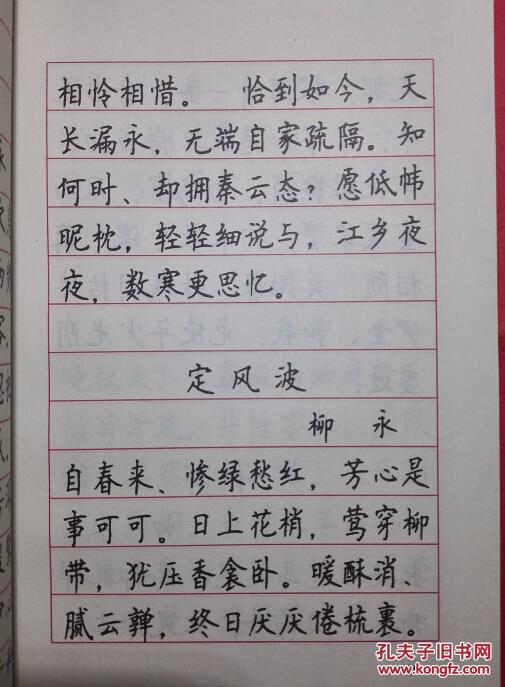 相怜相惜。 恰到如今，天
长漏永，无端自家疏隔。知
何时、却拥秦云态？愿低帏
昵枕，轻轻细说与，江乡夜
夜，数寒更思忆。
定风波
柳 永
自春来、惨绿愁红，芳心是
事可可。日上花梢，莺穿柳
带，犹压香衾卧。暖酥消、
腻云亸，终日厌厌倦梳裹。
孔夫子旧书网
www.kongfz.com